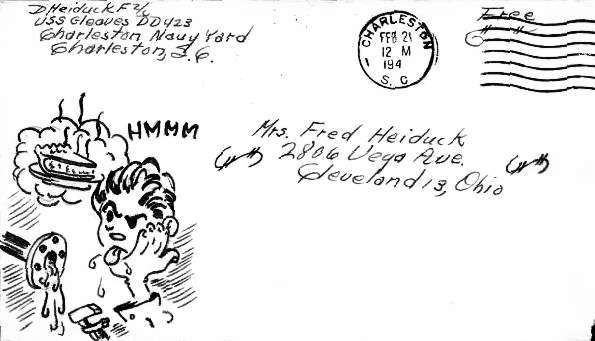 D Heiduck F 2/c
USS Gleaves DD423
Charleston Navy Yard
Charleston, S.C.
CHARLESTON
FEB 21
12 M
194
S. C
Free
HMMM
Mrs. Fred Heiduck
2806 Vega Ave.
Cleveland 13, Ohio